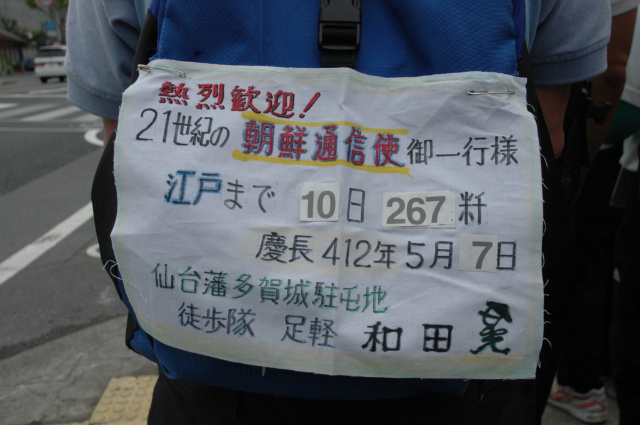 熱烈歓迎!
21世紀の朝鮮通信使御一行様
江戸まで10日267粁
慶長412年5月7日
仙台藩多賀城駐屯地
徒歩隊 足軽 和田